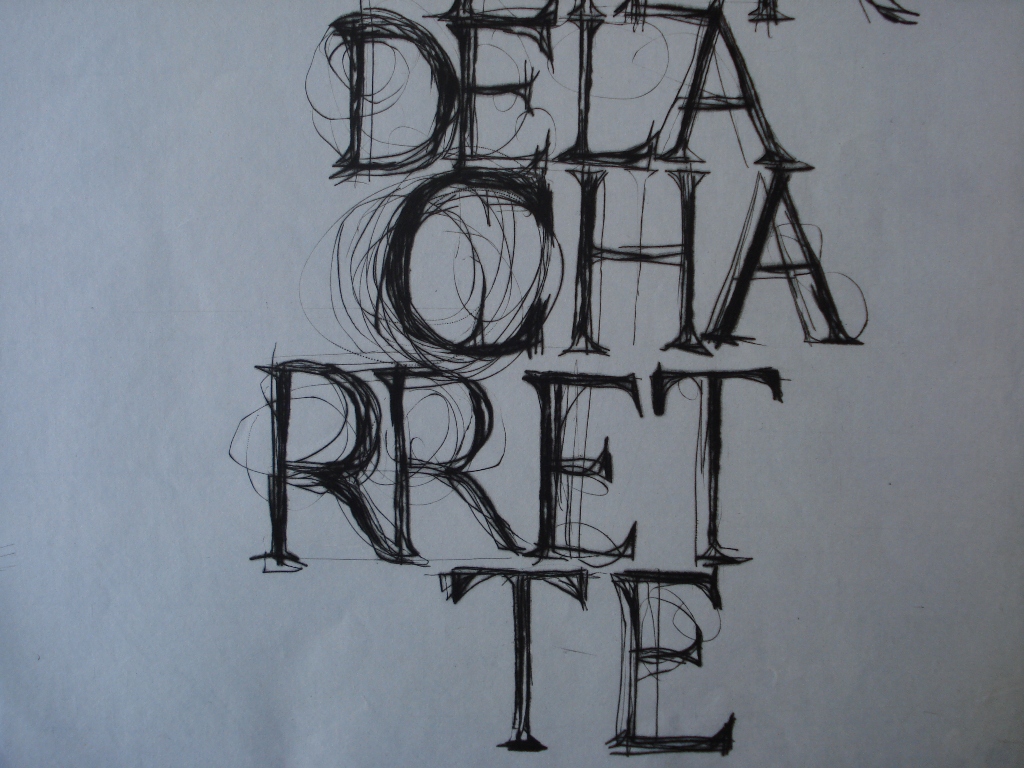 DELA
CHA
RRET
TE